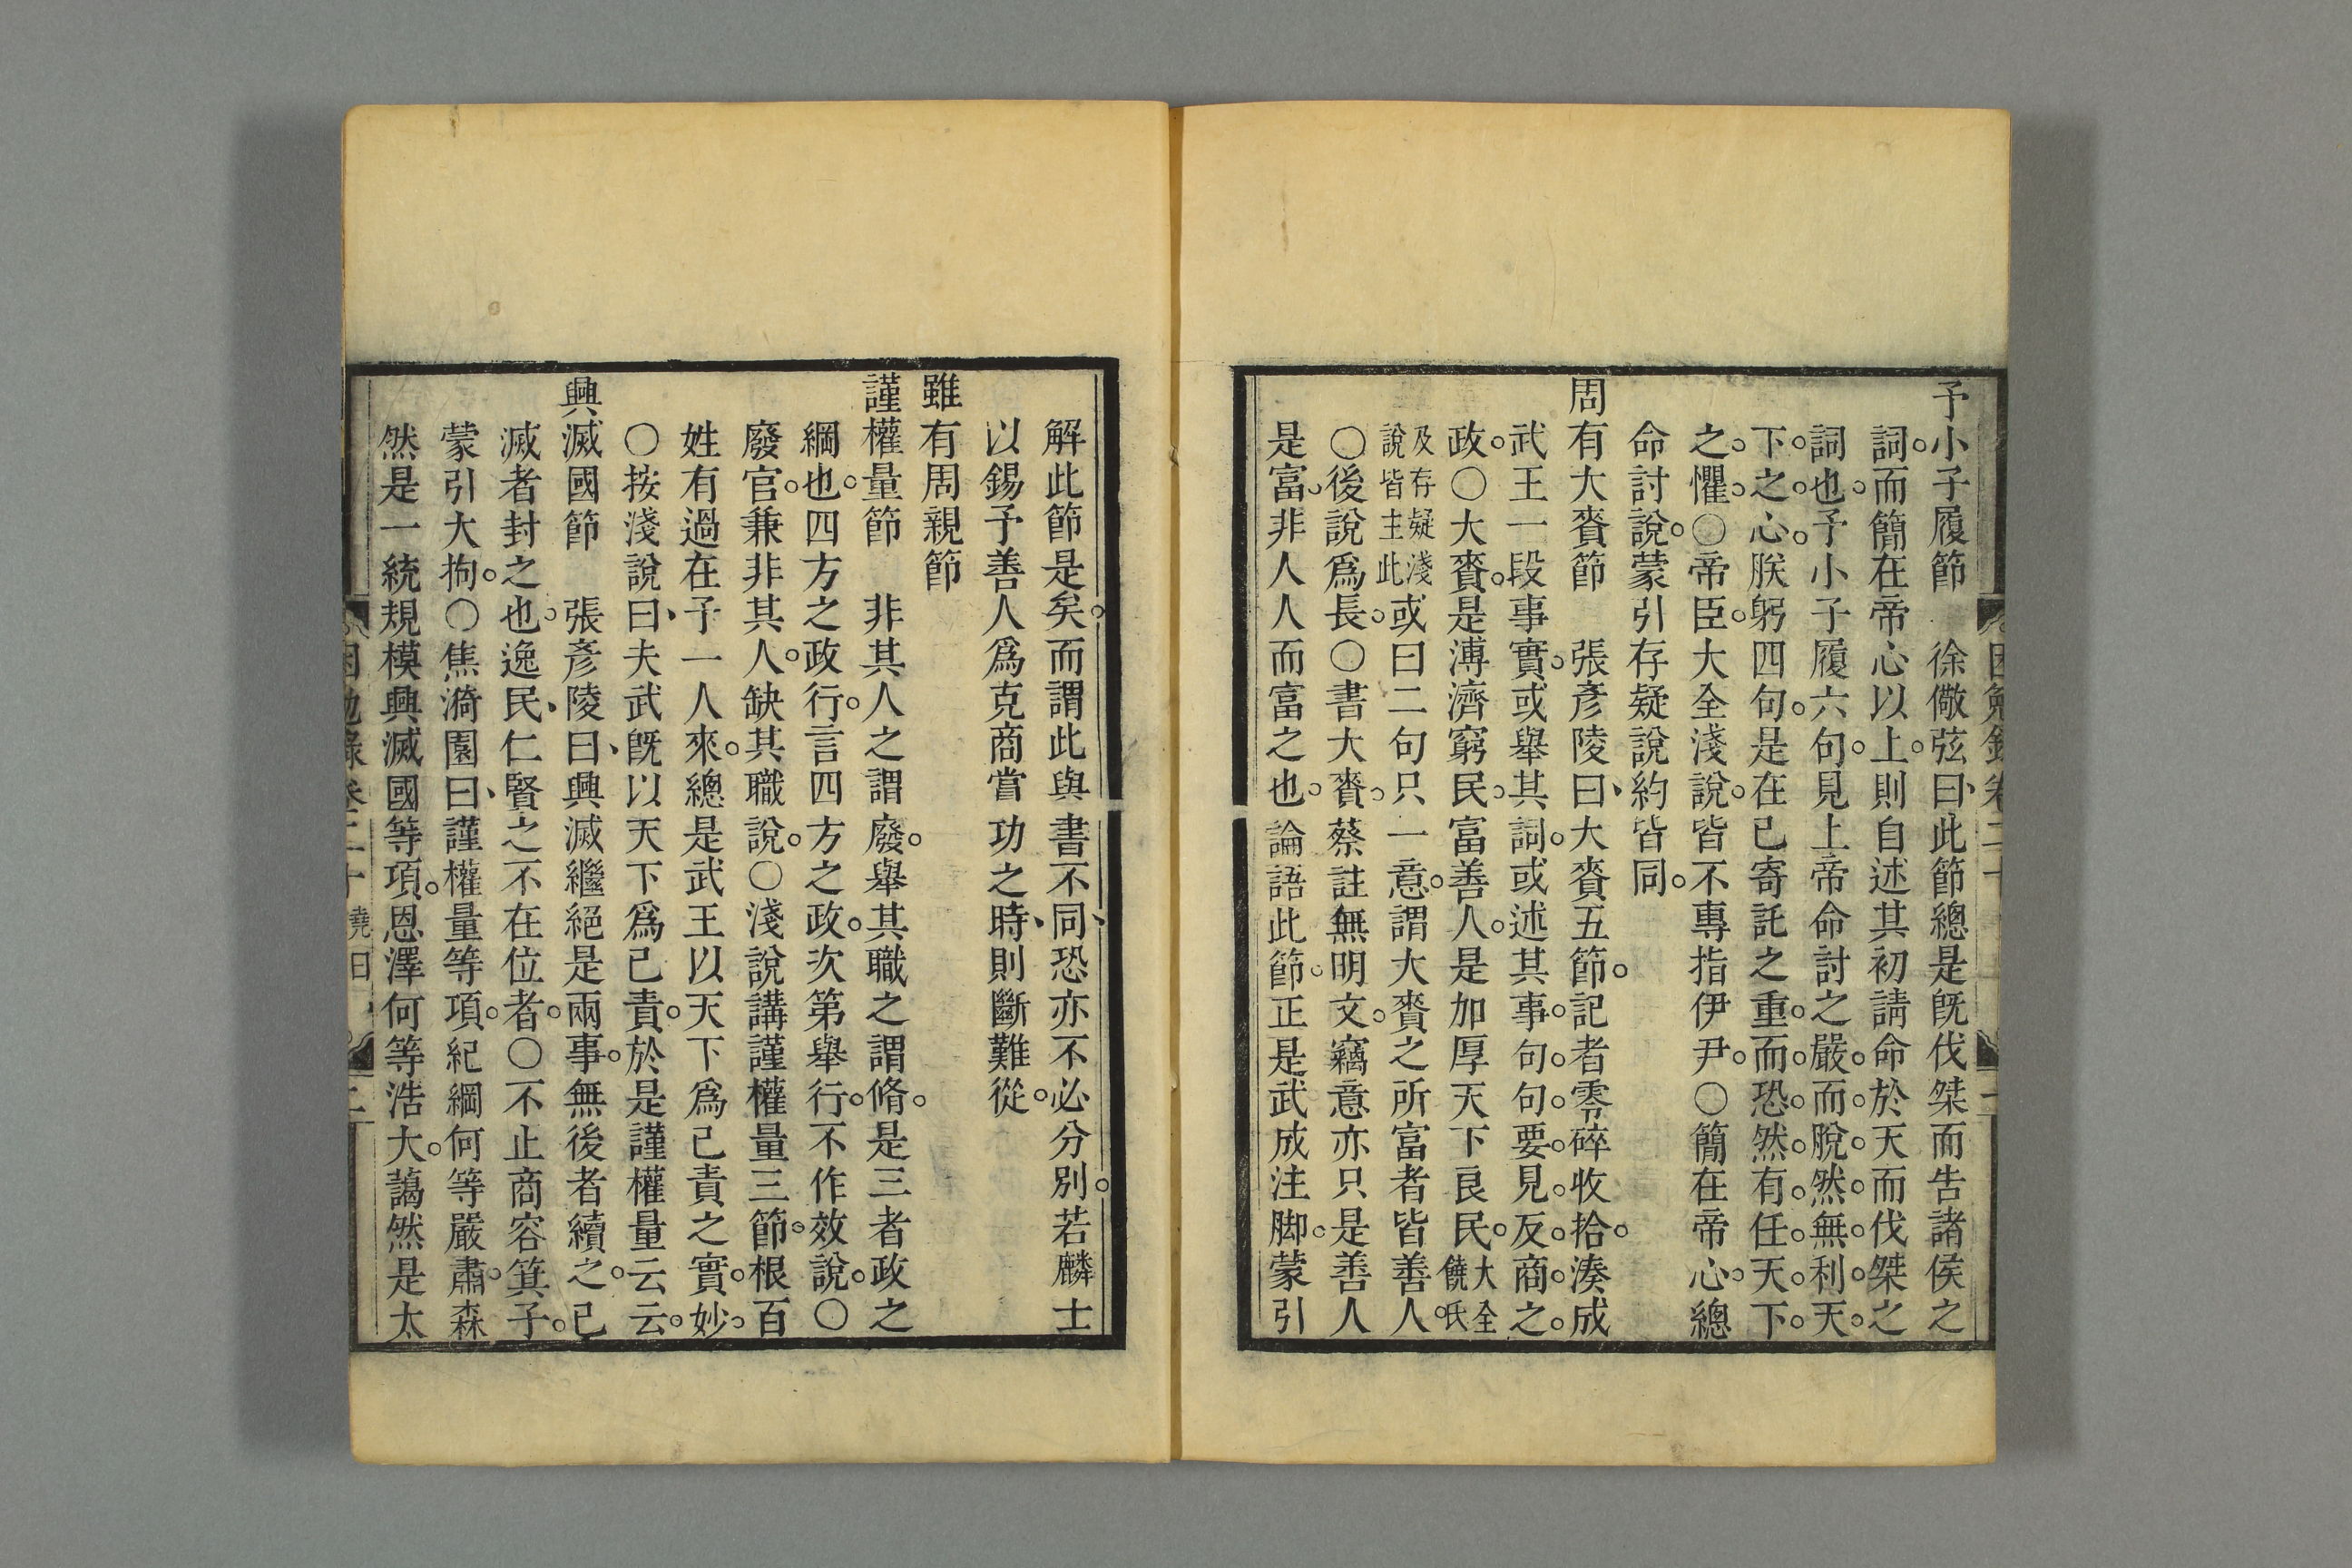 予小子履節　徐儆弦曰此節總是旣伐桀而告諸侯之
詞而簡在帝心以上則自述其初請命於天而伐桀之
詞也予小子履六句見上帝命討之嚴而脫然無利天
下之心朕躬四句是在己寄託之重而恐然有任天下
之懼○帝臣大全淺說皆不專指伊尹○簡在帝心總
命討說蒙引存疑說約皆同
周有大賚節　張彥陵曰大賚五節記者零碎收拾湊成
武王一段事實或舉其詞或述其事句句要見反商之
政○大賚是溥濟窮民富善人是加厚天下良民大全饒氏
及存疑淺說皆主此或曰二句只一意謂大賚之所富者皆善人
○後說爲長○書大賚蔡註無明文竊意亦只是善人
是富非人人而富之也論語此節正是武成注脚蒙引
解此節是矣而謂此與書不同恐亦不必分別若麟士
以錫予善人爲克商嘗功之時則斷難從
雖有周親節
謹權量節　非其人之謂廢舉其職之謂脩是三者政之
綱也四方之政行言四方之政次第舉行不作效說○
廢官兼非其人缺其職說○淺說講謹權量三節根百
姓有過在予一人來總是武王以天下爲己責之實妙
○按淺說曰夫武旣以天下爲己責於是謹權量云云
興滅國節　張彥陵曰興滅繼絕是兩事無後者續之已
滅者封之也逸民仁賢之不在位者○不止商容箕子
蒙引大拘○焦漪園曰謹權量等項紀綱何等嚴肅森
然是一統規模興滅國等項恩澤何等浩大藹然是太
困勉錄卷二十 堯曰 二